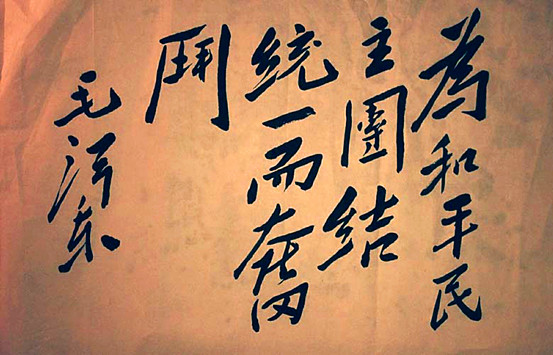 為和平民
主團結
統一而奮
鬥
毛泽东